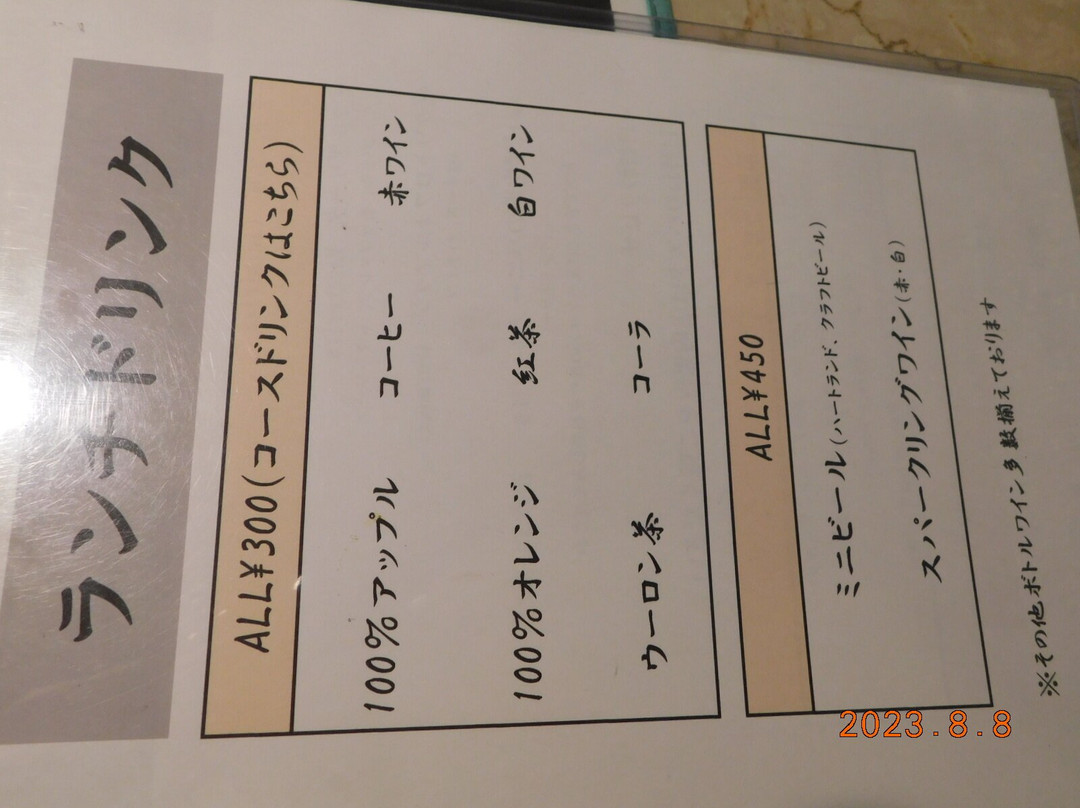 ランチドリンク
ALL¥300(コースドリンクはこちら)
100%アップル コーヒー 赤ワイン
100%オレンジ 紅茶 白ワイン
ウーロン茶 コーラ
ALL¥450
ミニビール(ハートランド、クラフトビール)
スパークリングワイン(赤・白)
※その他ボトルワイン多数揃えております
2023.8.8